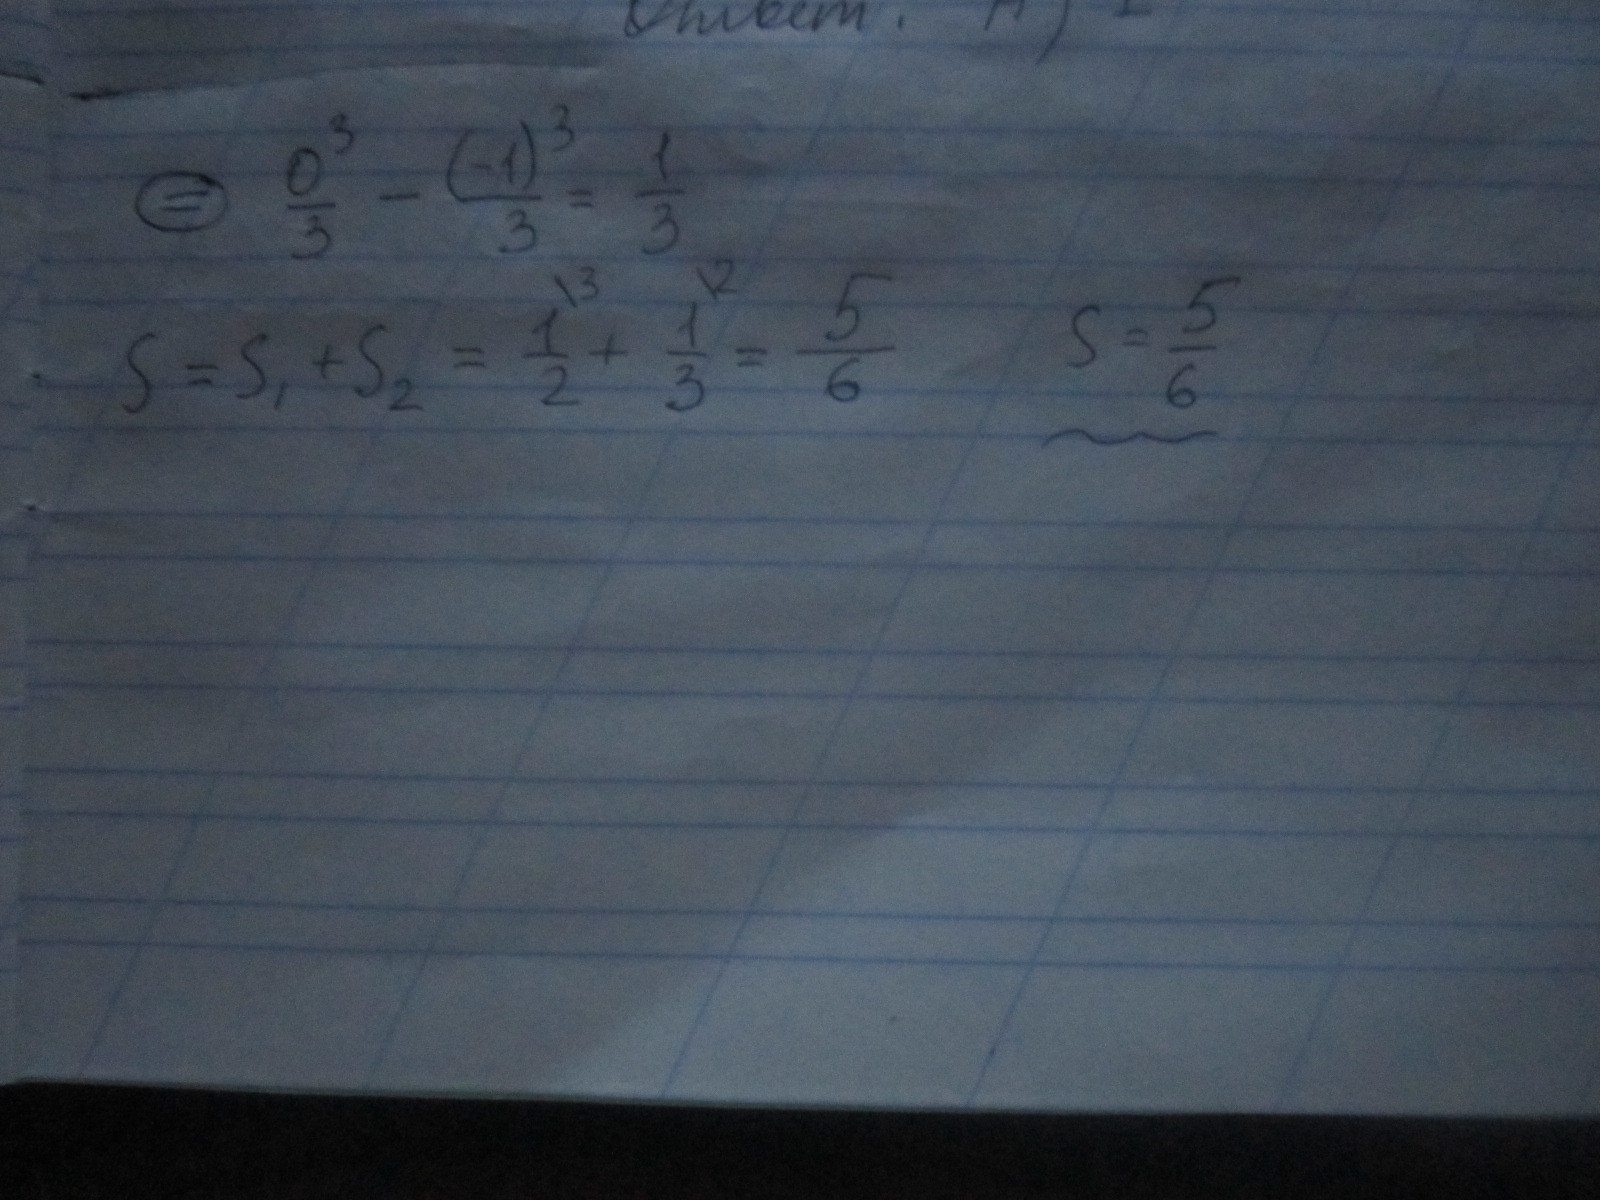 Ответ: А) 1
⊜ 0³/3 - (-1)³/3 = 1/3
S = S₁ + S₂ = 1/2 \3 + 1/3 \2 = 5/6 S = 5/6